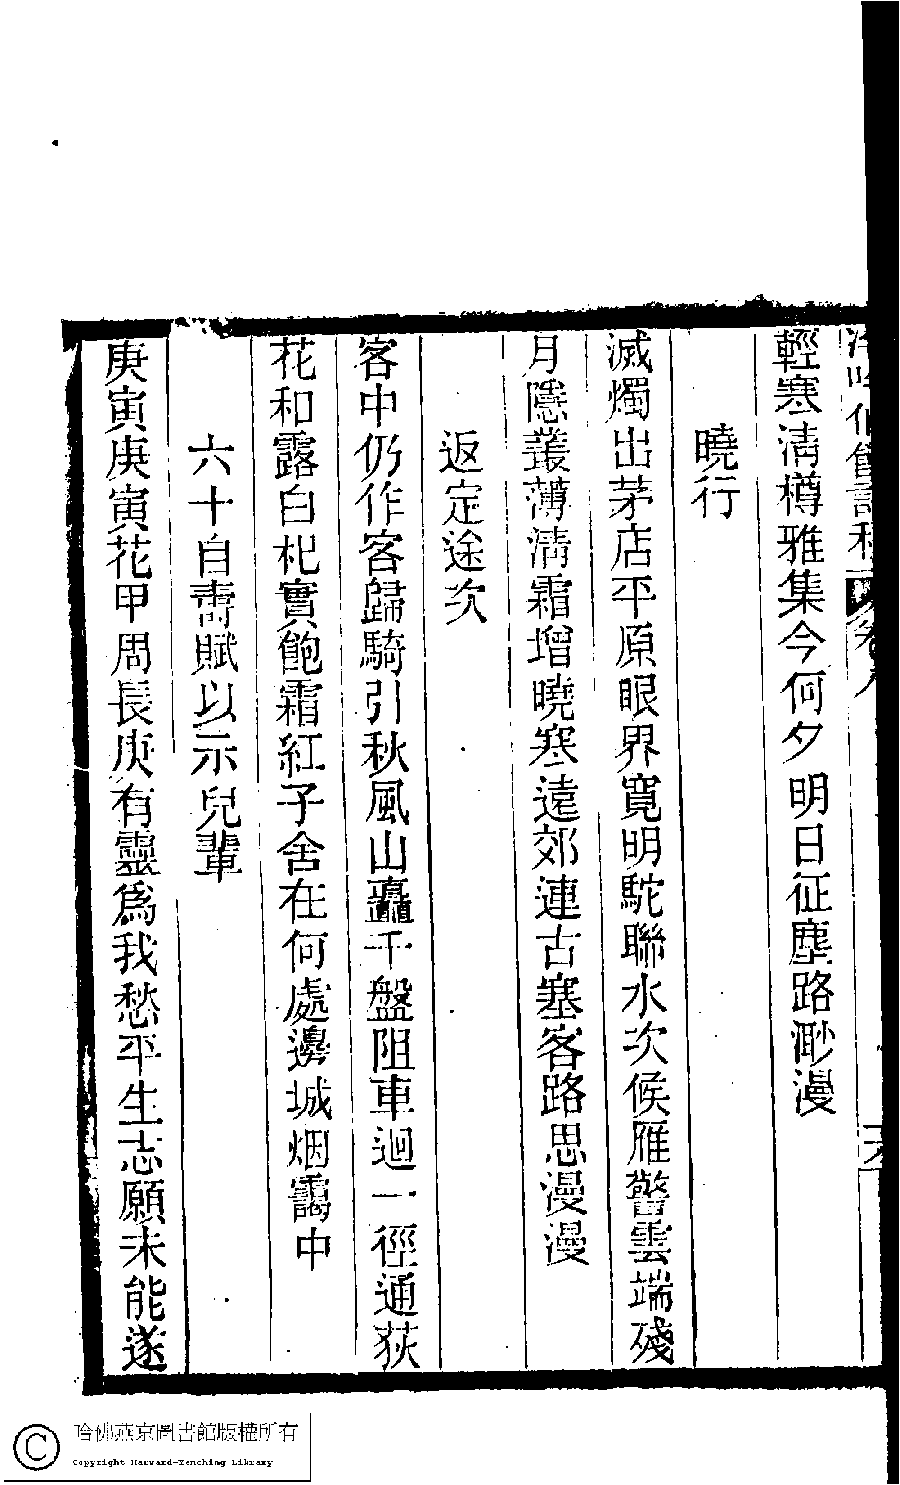 輕寒清樽雅集今何夕明日征塵路渺漫
曉行
滅燭出茅店平原眼界寬明駝聯水次候雁警雲端殘
月隱叢薄清霜增曉寒遠郊連古塞客路思漫漫
返定途次
客中仍作客歸騎引秋風山矗千盤阻車迴一徑通荻
花和露白杞實飽霜紅子舍在何處邊城烟靄中
六十自壽賦以示兒輩
庚寅庚寅花甲周長庚有靈爲我愁平生志願未能遂
哈佛燕京圖書館版權所有
Copyright Harvard-Yenching Library